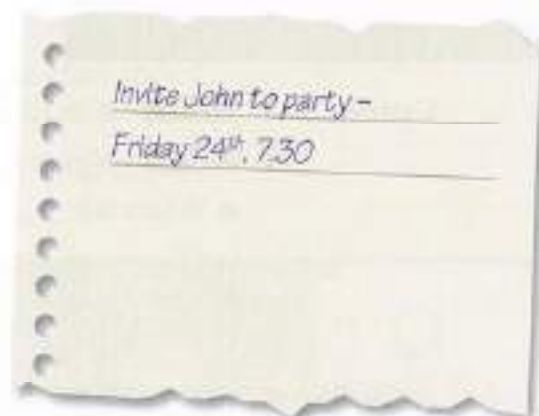 Invite John to party –
Friday 24th, 7.30